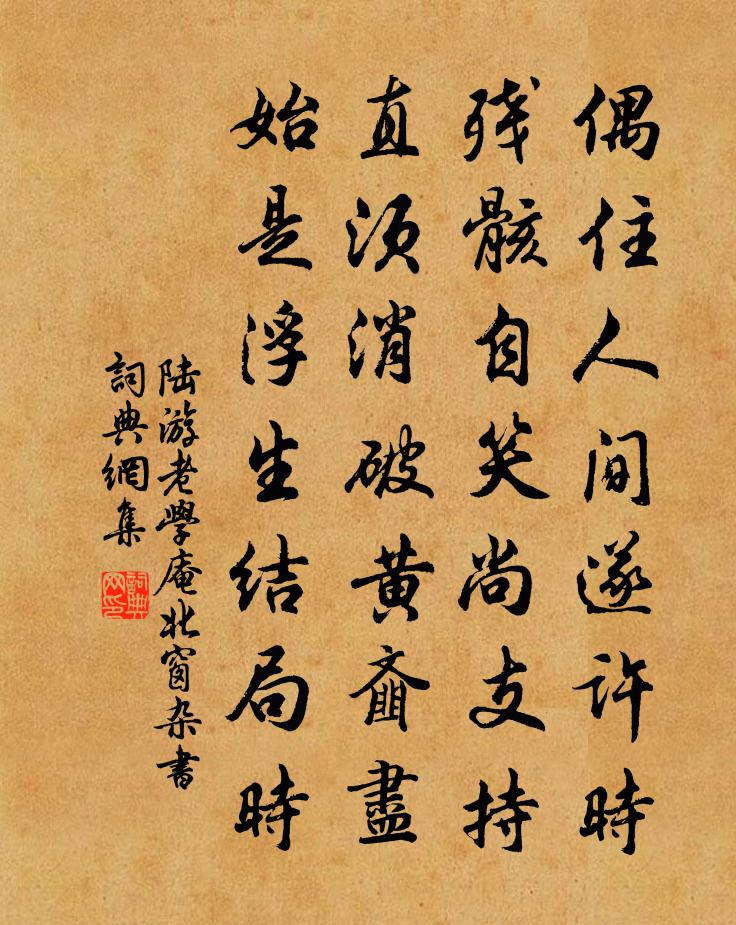 偶住人间遂许時
残骸自笑尚支持
直须消破黄齑盡
始是浮生结局時
陆游老學庵北窗杂書
詞典網集
詞典网印